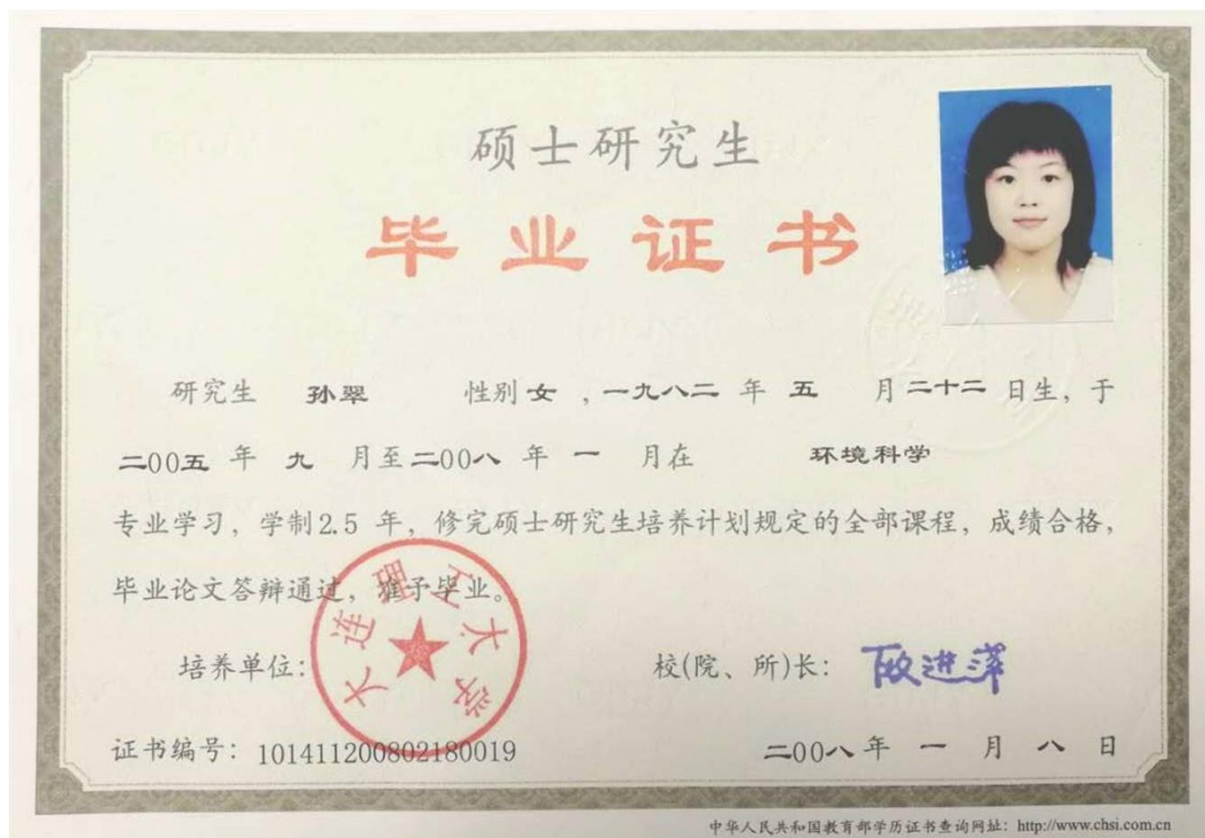 硕士研究生
毕业证书
研究生 孙翠 性别 女 ,一九八二 年 五 月 二十二 日生, 于
二00五 年 九 月至 二00八 年 一 月在 环境科学
专业学习, 学制2.5 年, 修完硕士研究生培养计划规定的全部课程, 成绩合格,
毕业论文答辩通过, 准予毕业。
大连理工大学
培养单位: 校(院、所)长:
证书编号: 101411200802180019 二00八 年 一 月 八 日
中华人民共和国教育部学历证书查询网址: http://www.chsi.com.cn